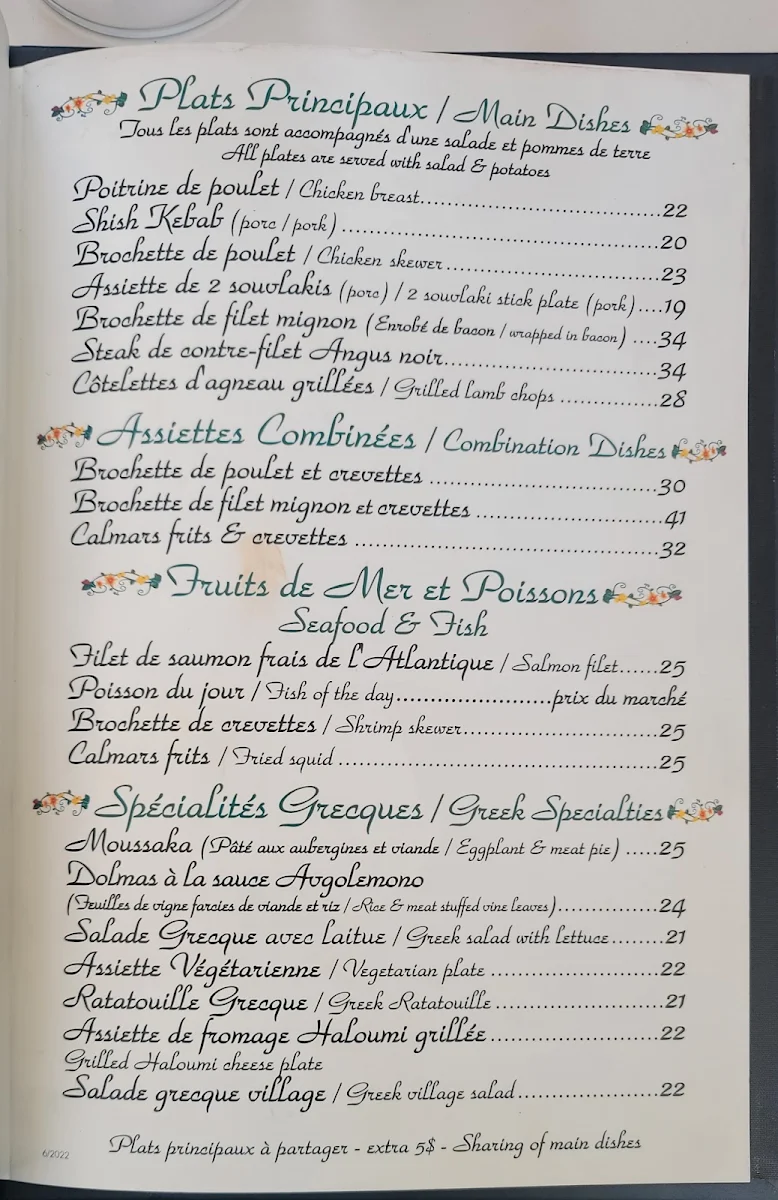 Plats Principaux / Main Dishes
Tous les plats sont accompagnés d'une salade et pommes de terre
All plates are served with salad & potatoes
Poitrine de poulet / Chicken breast..........22
Shish Kebab (porc / pork) ..........20
Brochette de poulet / Chicken skewer..........23
Assiette de 2 souvlakis (porc) / 2 souvlaki stick plate (pork)....19
Brochette de filet mignon (Enrobé de bacon / wrapped in bacon) ....34
Steak de contre-filet Angus noir..........34
Côtelettes d'agneau grillées / Grilled lamb chops ..........28
Assiettes Combinées / Combination Dishes
Brochette de poulet et crevettes ..........30
Brochette de filet mignon et crevettes ..........41
Calmars frits & crevettes ..........32
Fruits de Mer et Poissons
Seafood & Fish
Filet de saumon frais de l'Atlantique / Salmon filet......25
Poisson du jour / Fish of the day..........prix du marché
Brochette de crevettes / Shrimp skewer..........25
Calmars frits / Fried squid ..........25
Spécialités Grecques / Greek Specialties
Moussaka (Pâté aux aubergines et viande / Eggplant & meat pie) .....25
Dolmas à la sauce Avgolemono
(Feuilles de vigne farcies de viande et riz / Rice & meat stuffed vine leaves)..........24
Salade Grecque avec laitue / Greek salad with lettuce........21
Assiette Végétarienne / Vegetarian plate ..........22
Ratatouille Grecque / Greek Ratatouille ..........21
Assiette de fromage Haloumi grillée..........22
Grilled Haloumi cheese plate
Salade grecque village / Greek village salad..........22
Plats principaux à partager - extra 5$ - Sharing of main dishes
6/2022